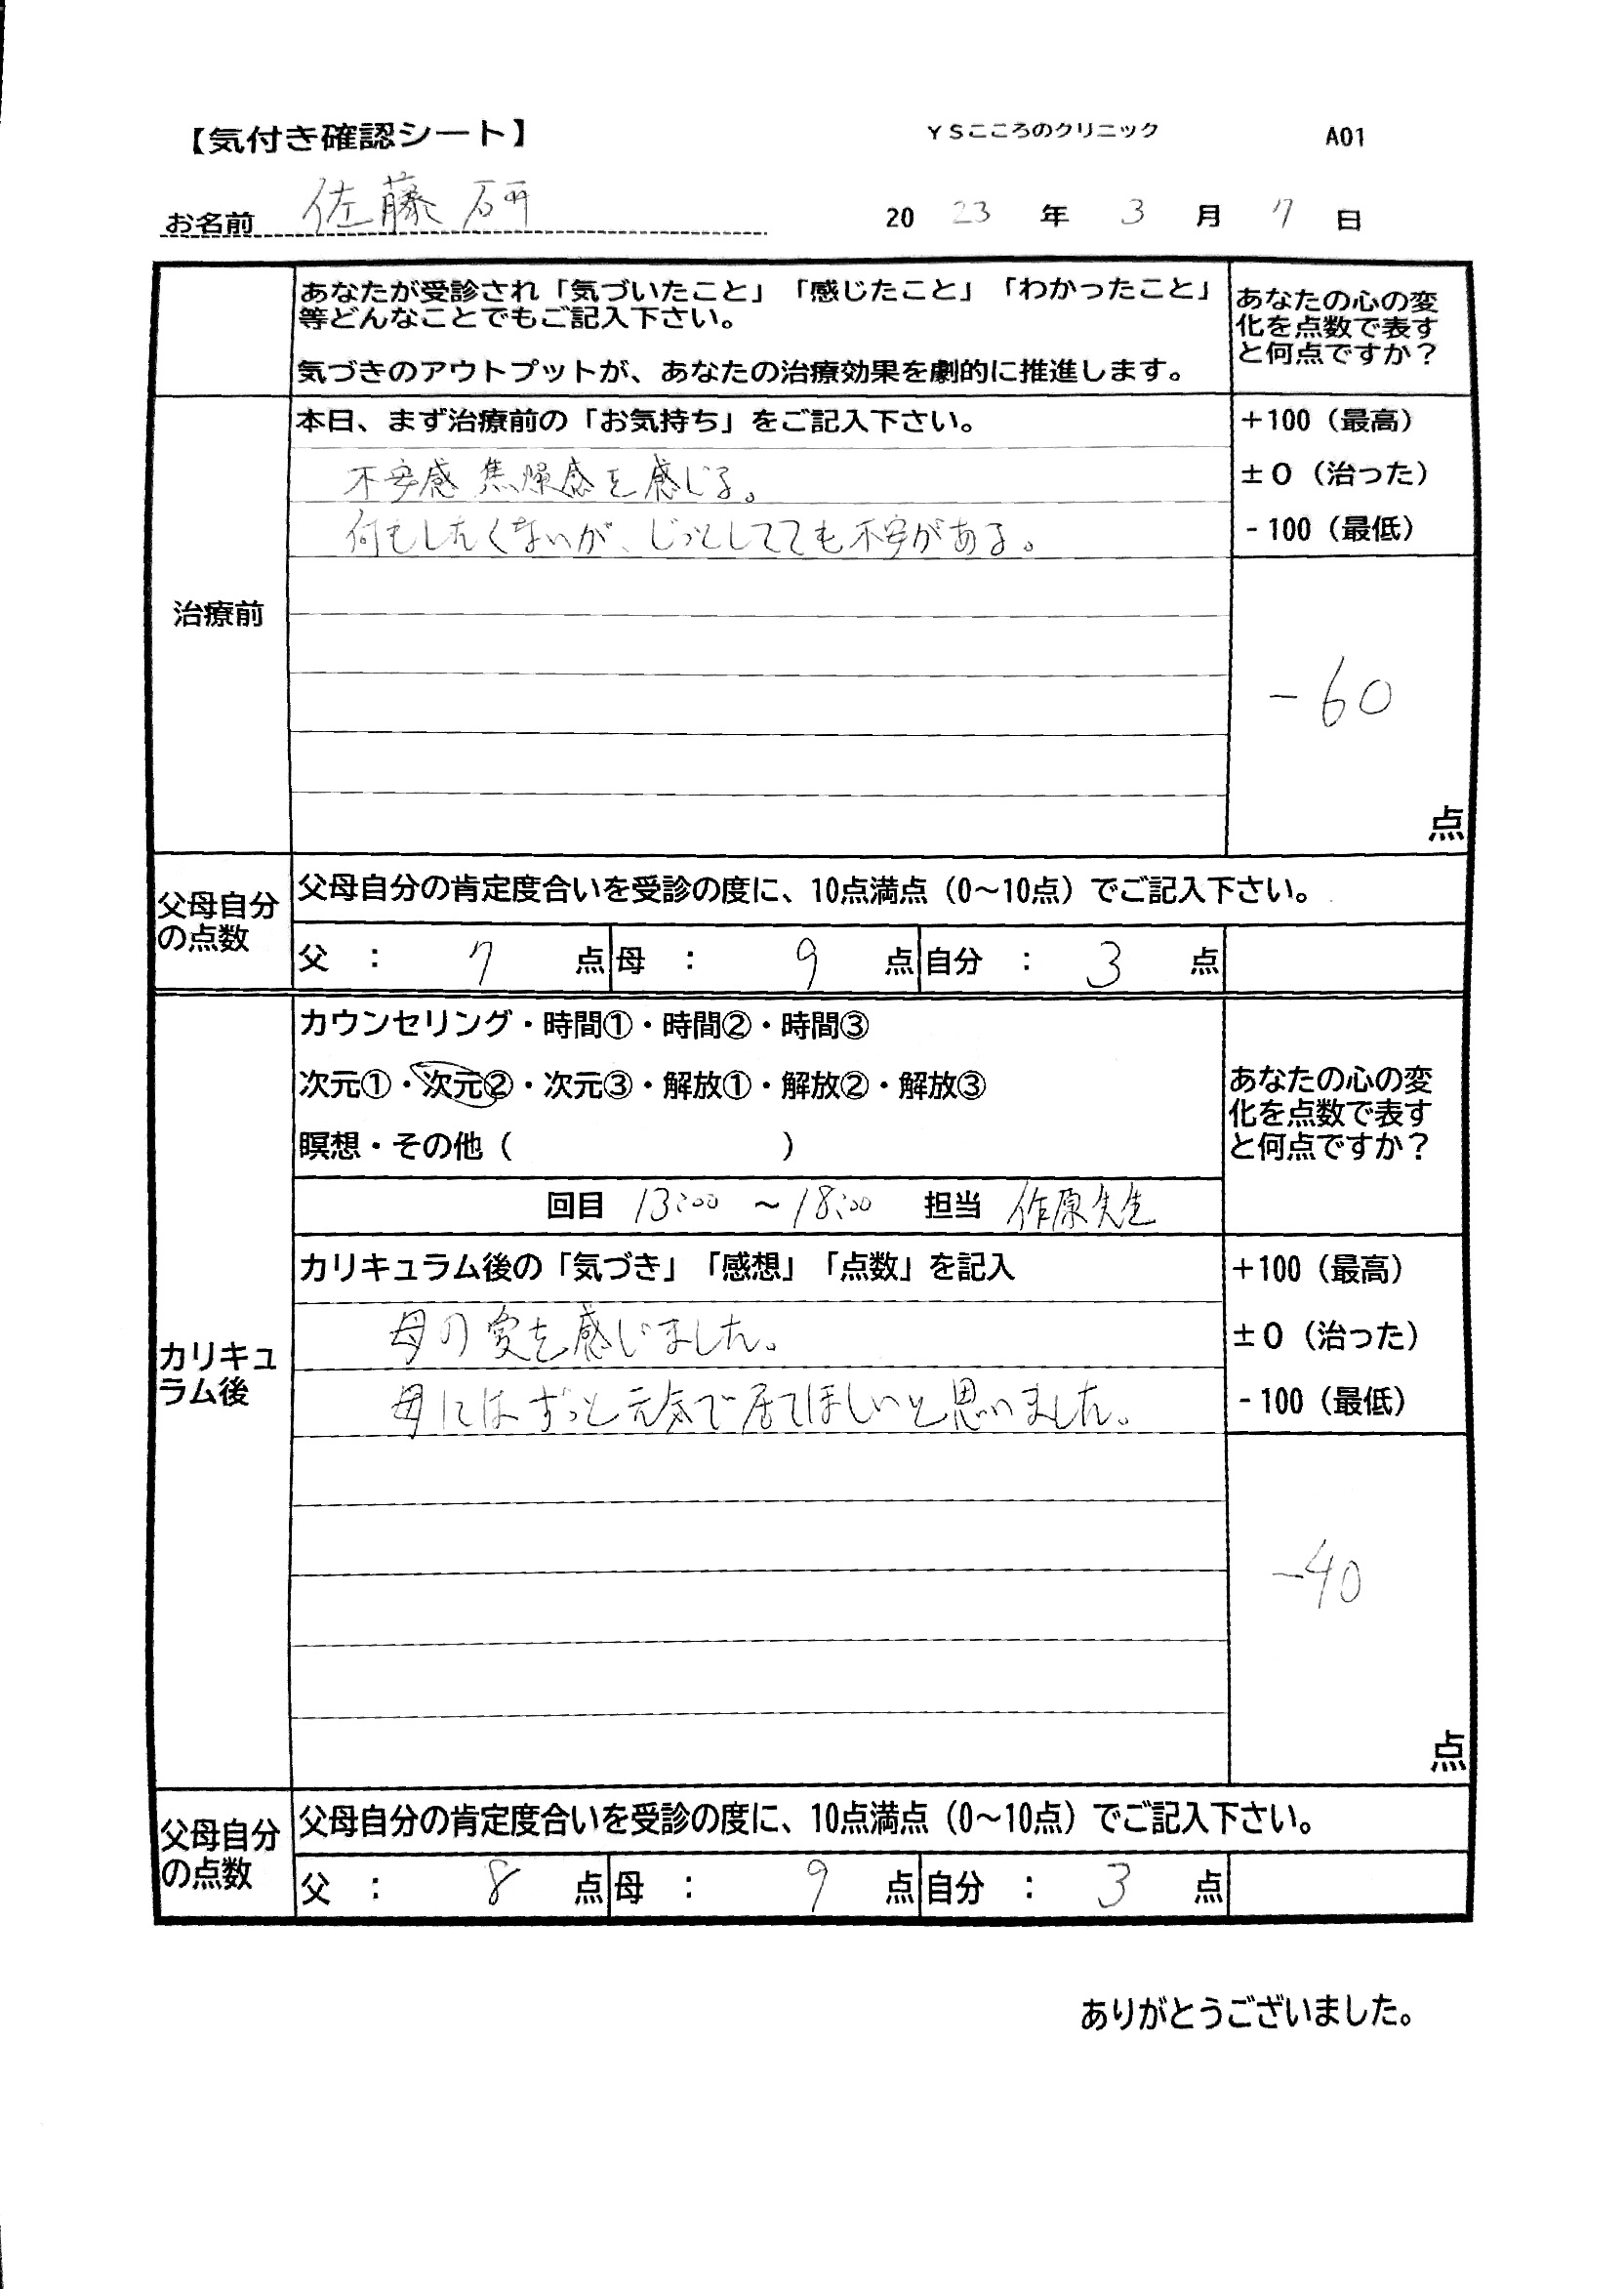 【気付き確認シート】
ＹＳこころのクリニック
A01
お名前 佐藤 研
20 23 年 3 月 7 日
あなたが受診され「気づいたこと」「感じたこと」「わかったこと」
等どんなことでもご記入下さい。
気づきのアウトプットが、あなたの治療効果を劇的に推進します。
あなたの心の変
化を点数で表す
と何点ですか？
治療前
本日、まず治療前の「お気持ち」をご記入下さい。
不安感 焦燥感を感じる。
何もしたくないが、じっとしてても不安がある。
+100（最高）
±0（治った）
- 100（最低）
-60
点
父母自分
の点数
父母自分の肯定度合いを受診の度に、10点満点（0～10点）でご記入下さい。
父 : 7 点 母 : 9 点 自分 : 3 点
カリキュ
ラム後
カウンセリング・時間①・時間②・時間③
次元①・次元②・次元③・解放①・解放②・解放③
瞑想・その他（ ）
回目 13:00 ～ 18:00 担当 作原先生
あなたの心の変
化を点数で表す
と何点ですか？
カリキュラム後の「気づき」「感想」「点数」を記入
母の愛を感じました。
母にはずっと元気で居てほしいと思いました。
+100（最高）
±0（治った）
- 100（最低）
-40
点
父母自分
の点数
父母自分の肯定度合いを受診の度に、10点満点（0～10点）でご記入下さい。
父 : 8 点 母 : 9 点 自分 : 3 点
ありがとうございました。